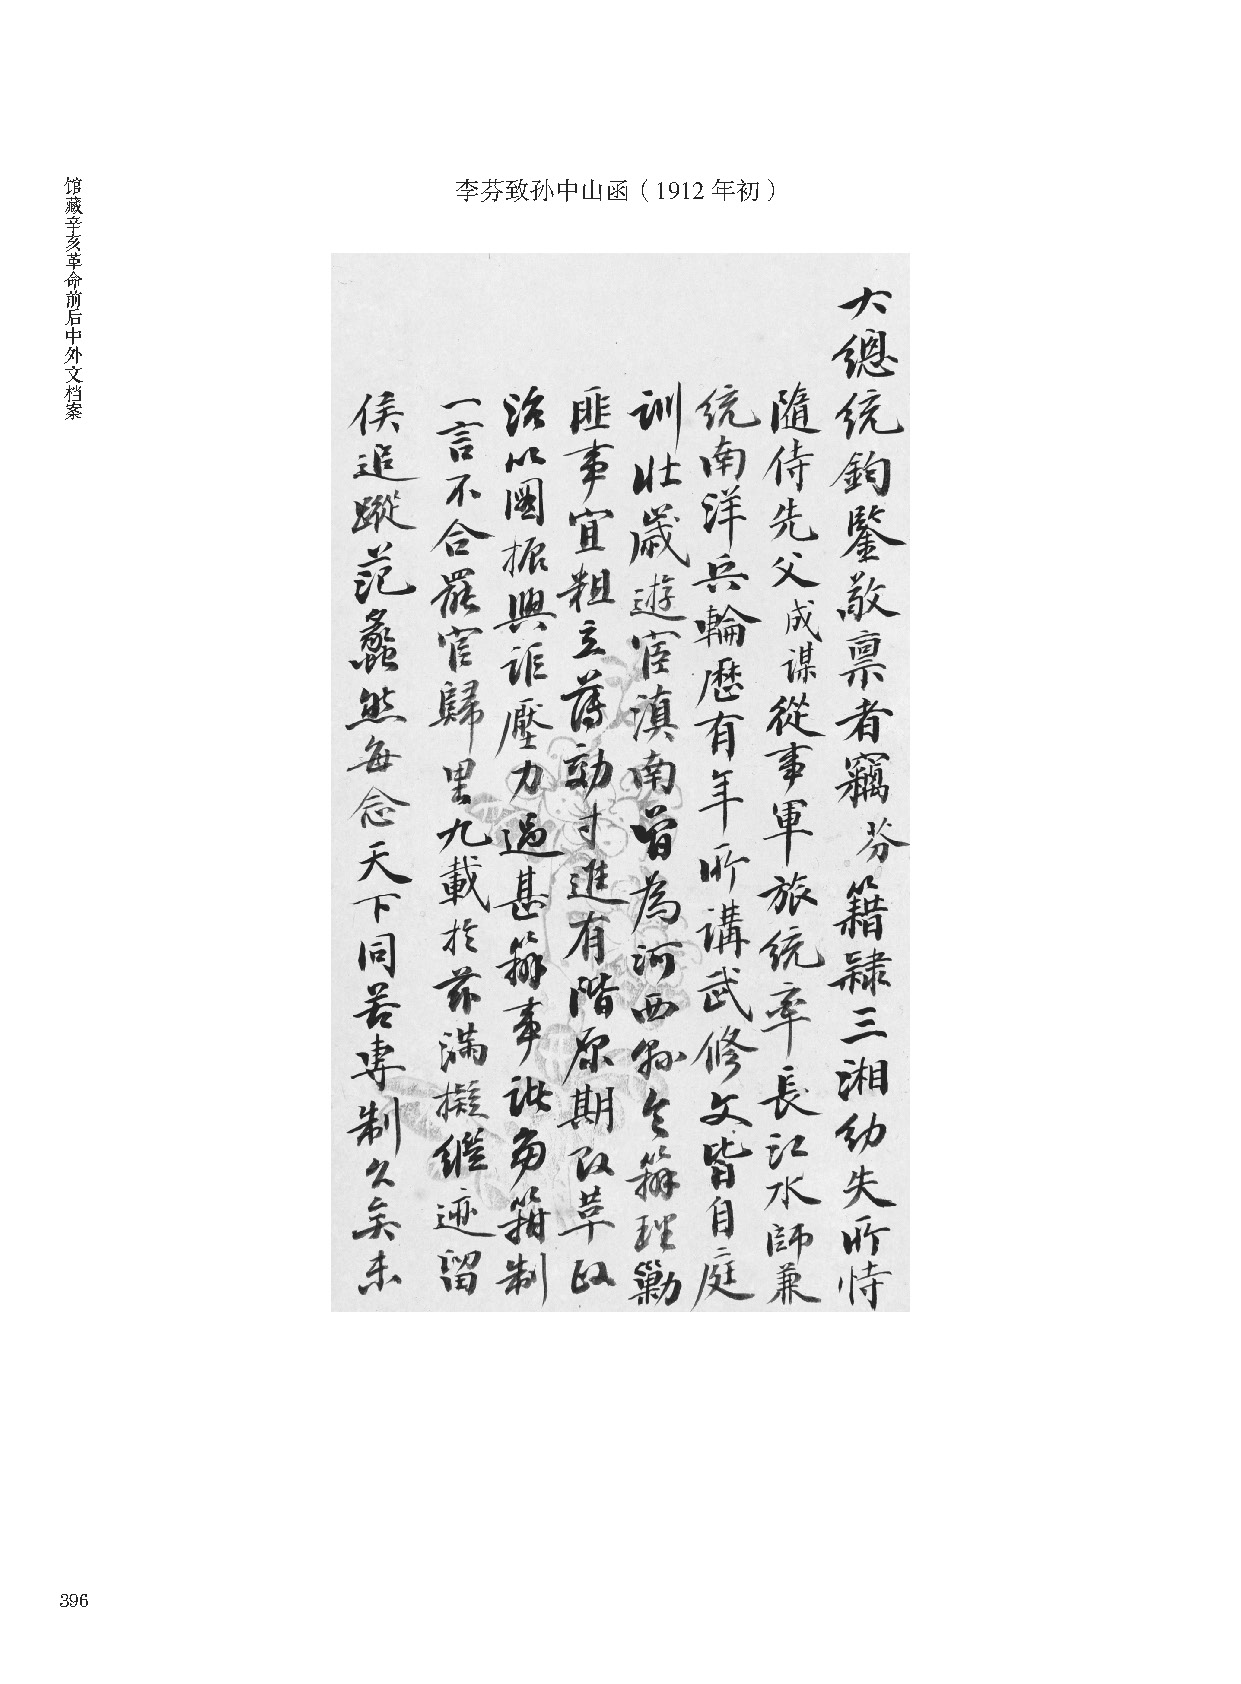 李芬致孙中山函（1912 年初）
馆藏辛亥革命前后中外文档案
大總統鈞鑒敬禀者竊芬籍隸三湘幼失所恃
隨侍先父成谋從事軍旅統率長江水師兼
統南洋兵輪歷有年所講武修文皆自庭
訓壯歲遊宦滇南曾為河西縣令辦理勦
匪事宜粗立薄効寸進有階原期改革政
治以圖振興詎壓力過甚辦事諸多箝制
一言不合罷官歸里九載於茲滿擬繼迹留
侯追蹤范蠡然每念天下同苦專制久矣未
396